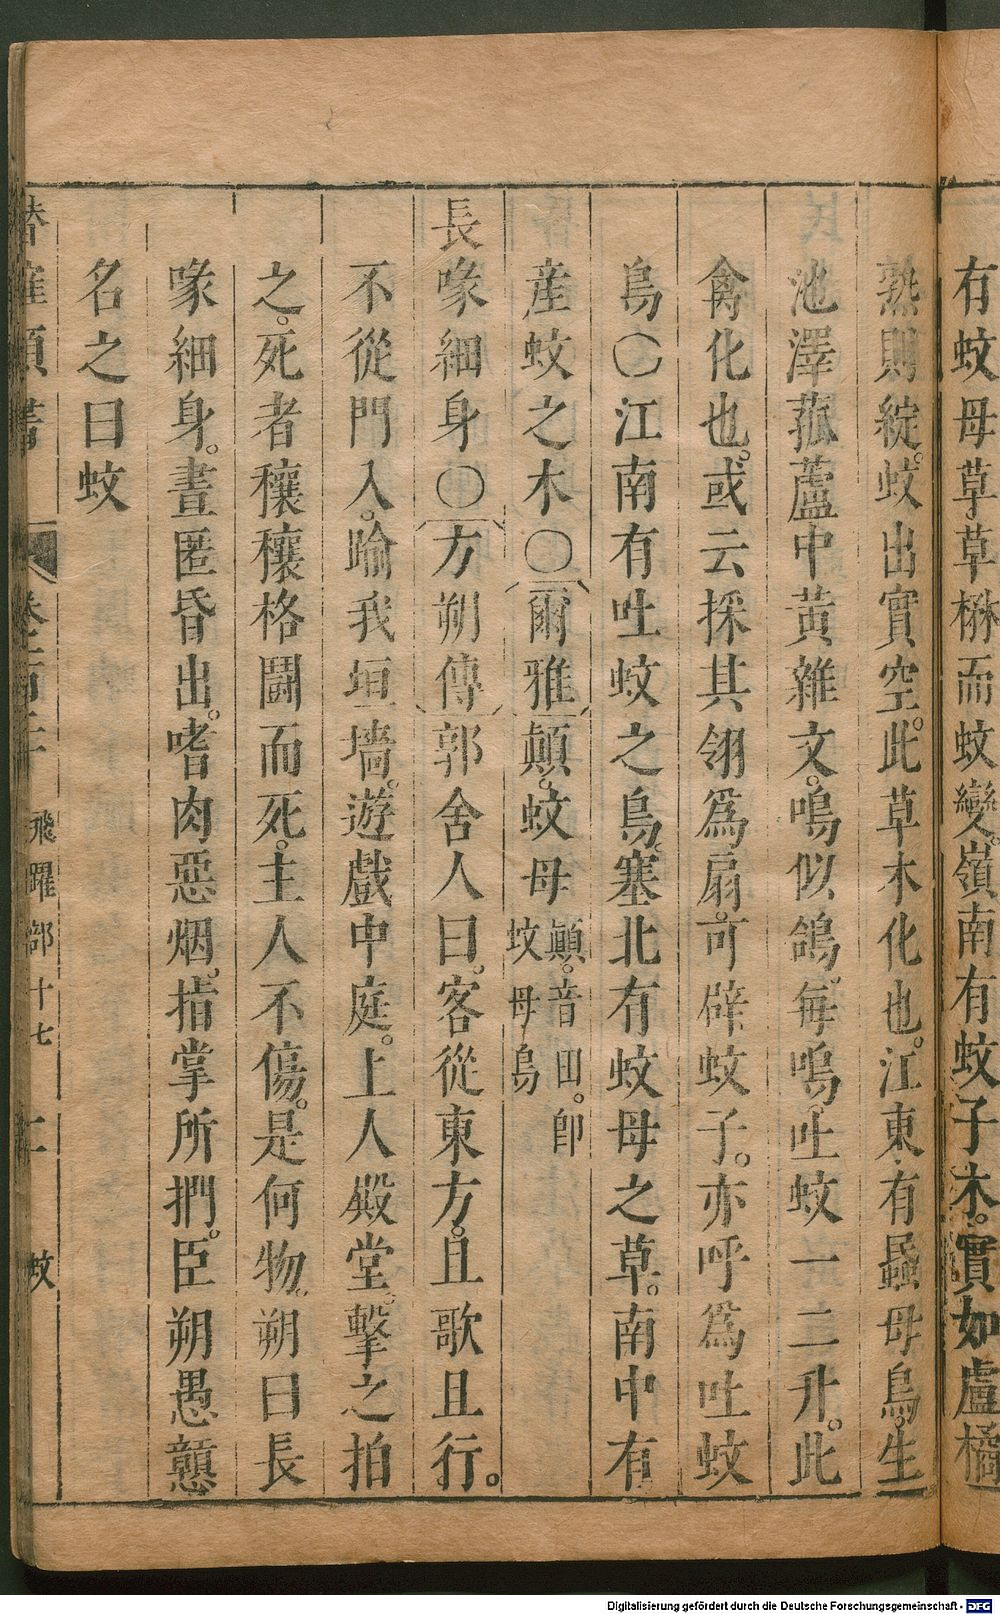 有蚊母草。草楙而蚊變。嶺南有蚊子木。實如盧橘
熟則綻。蚊出實空。此草木化也。江東有蟁母鳥。生
池澤菰蘆中。黃雜文。鳴似鴿。每鳴。吐蚊一二升。此
禽化也。或云採其翎爲扇。可辟蚊子。亦呼爲吐蚊
鳥〇江南有吐蚊之鳥。塞北有蚊母之草。南中有
産蚊之木〇爾雅鷏。蚊母鷏。音田。卽蚊母鳥
長喙細身〇方朔傳郭舍人曰。客從東方。且歌且行。
不從門入。喻我垣墻。遊戲中庭。上人殿堂。擊之拍
之。死者穰穰格鬭而死。主人不傷。是何物。朔曰長
喙細身。晝匿昏出。嗜肉惡烟。指掌所捫。臣朔愚戇
名之曰蚊
類書 飛躍部十七 蚊
Digitalisierung gefördert durch die Deutsche Forschungsgemeinschaft - DFG